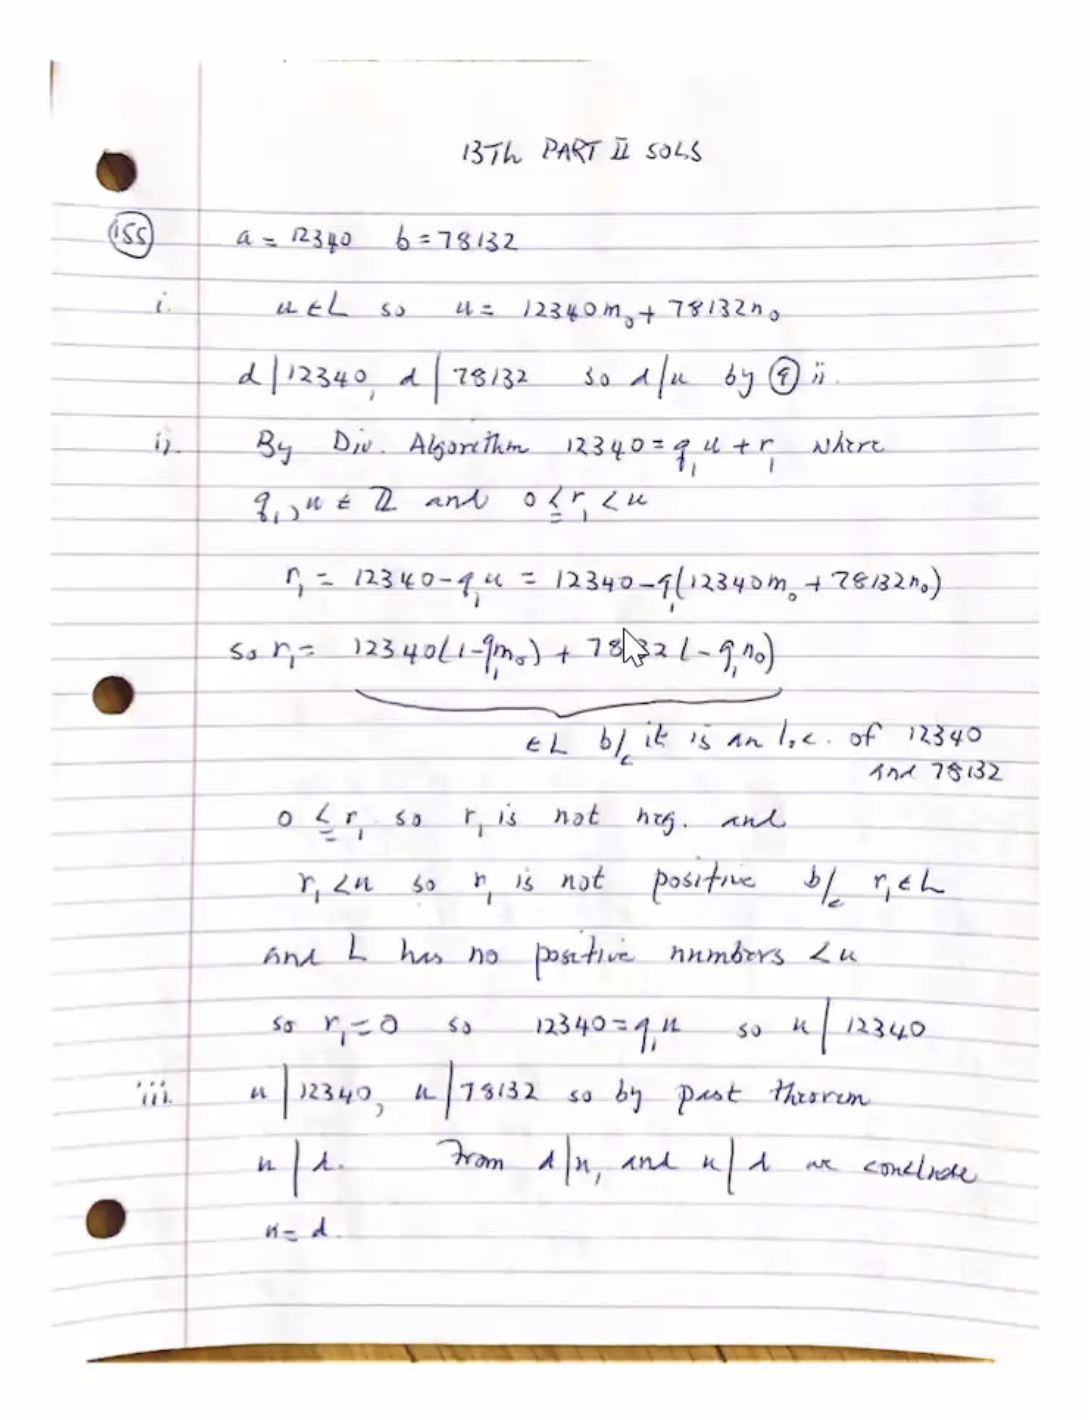 13Th PART II SOLS
155 a = 12340 b = 78132
i. u ∈ L so u = 12340m₀ + 78132n₀
d | 12340, d | 78132 so d/u by ⑨ ii.
ii. By Div. Algorithm 12340 = q₁u + r₁ where
q₁, u ∈ ℤ and 0 ≤ r₁ < u
r₁ = 12340 - q₁u = 12340 - q₁(12340m₀ + 78132n₀)
so r₁ = 12340(1 - q₁m₀) + 78132(-q₁n₀)
∈ L b/c it is an l.c. of 12340
and 78132
0 ≤ r₁ so r₁ is not neg. and
r₁ < u so r₁ is not positive b/c r₁ ∈ L
and L has no positive numbers < u
so r₁ = 0 so 12340 = q₁u so u | 12340
iii. u | 12340, u | 78132 so by past theorem
u | d. From d | u, and u | d we conclude
u = d.